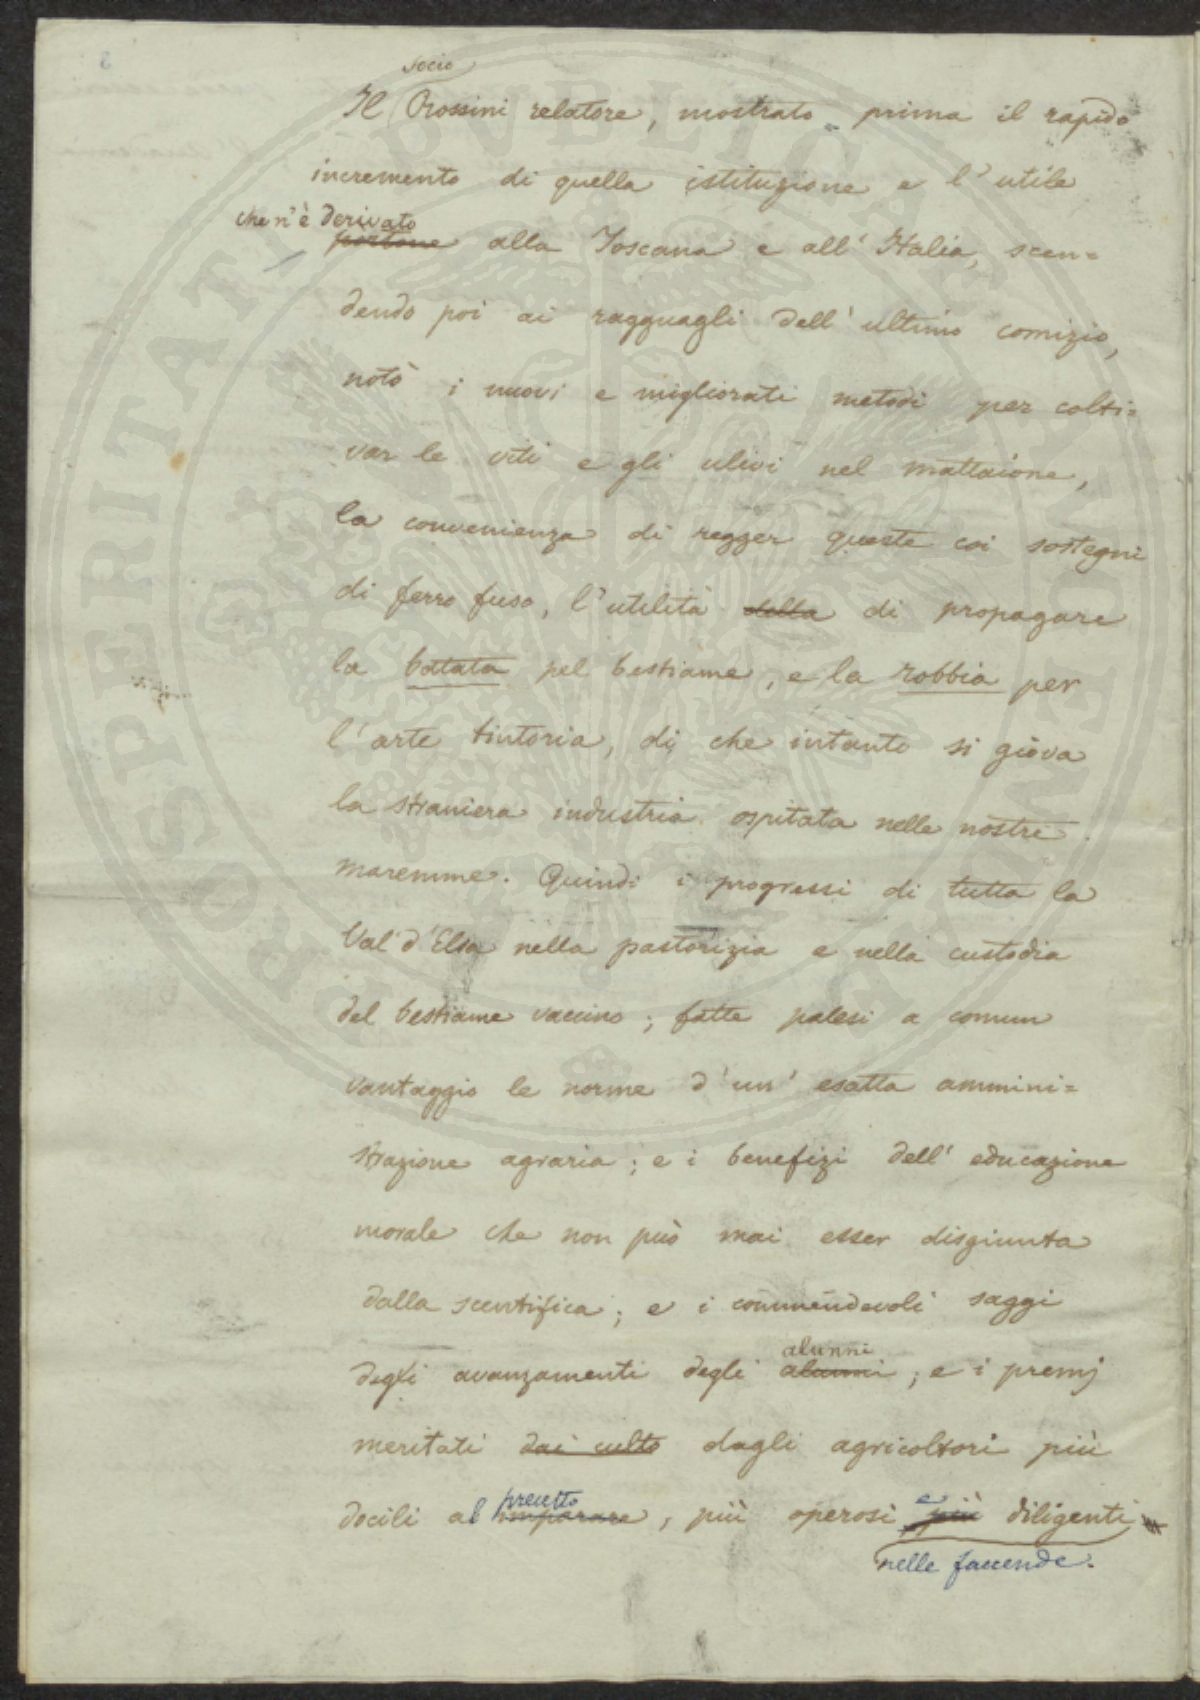 socio
Il Rossini relatore, mostrato prima il rapido
incremento di quella istituzione e l'utile
che n'è derivato
portone alla Toscana e all'Italia, scen=
dendo poi ai ragguagli dell'ultimo comizio,
notò i nuovi e migliorati metodi per colti=
var le viti e gli ulivi nel mattaione,
la convenienza di regger queste coi sostegni
di ferro fuso, l'utilità della di propagare
la battata pel bestiame, e la robbia per
l'arte tintoria, di che intanto si giova
la straniera industria ospitata nelle nostre
maremme. Quindi i progressi di tutta la
Val d'Elsa nella pastorizia e nella custodia
del bestiame vaccino; fatte palesi a comun
vantaggio le norme d'un' esatta ammini=
strazione agraria; e i benefizi dell' educazione
morale che non può mai esser disgiunta
dalla scentifica; e i commendevoli saggi
alunni
degli avanzamenti degli alunni; e i premj
meritati dai culto dagli agricoltori più
precetto e
docili al imparare, più operosi più diligenti
nelle faccende.
PROSPERITATI PVBLICAE AVGENDAE